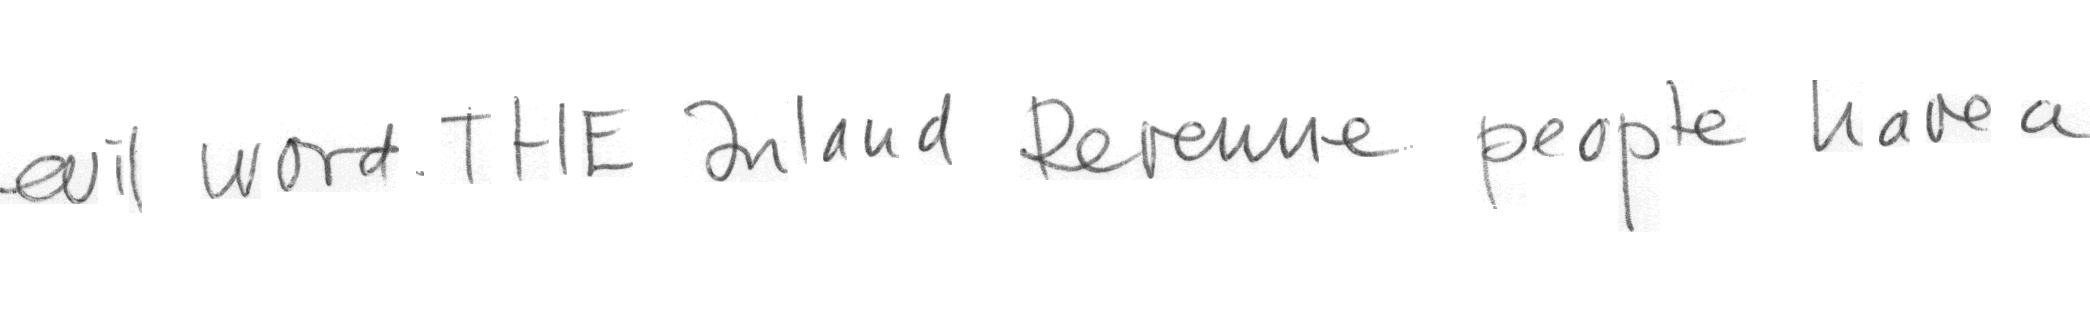 evil word. THE Inland Revenue people have a